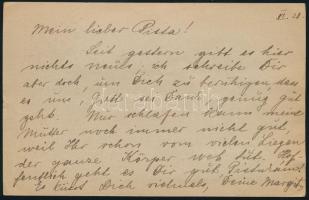 XI. 28.
Mein lieber Pista!
Seit gestern gibt es hier
nichts neues; ich schreibe Dir
aber doch um Dich zu beruhigen, dass
es uns, Gott sei Dank, genug gut
geht. Wir schlafen kann meine
Mutter noch immer nicht gut,
weil Ihr schon vom vielen Liegen
der ganze Körper weh tut. Hof-
fentlich geht es Dir gut
Es küsst Dich vielmals, Deine Margit.